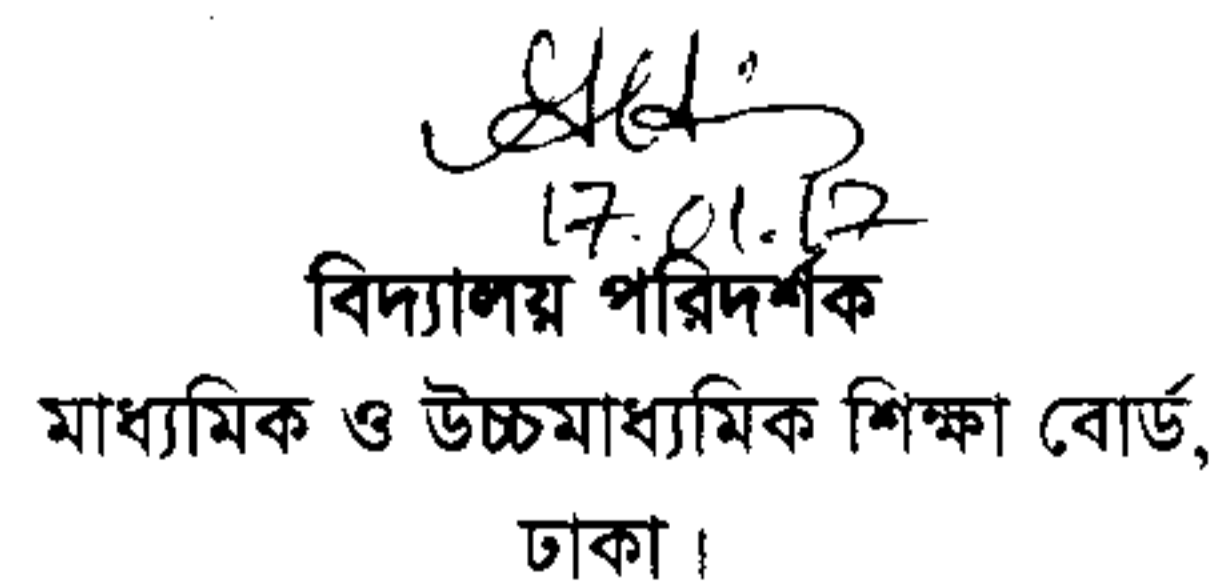 17.01.17
বিদ্যালয় পরিদর্শক
মাধ্যমিক ও উচ্চমাধ্যমিক শিক্ষা বোর্ড,
ঢাকা।